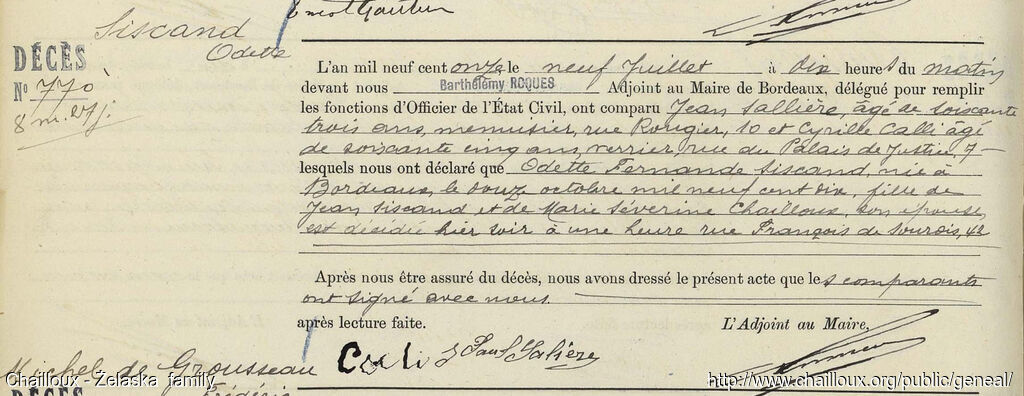 Siscand
Odette
DÉCÈS
N° 770
8 m. 27 j.
L'an mil neuf cent onze le neuf Juillet à dix heures du matin
devant nous Barthélemy ROQUES Adjoint au Maire de Bordeaux, délégué pour remplir
les fonctions d'Officier de l'État Civil, ont comparu Jean Sallière, âgé de soixante
trois ans, menuisier, rue Rougier, 10 et Cyrille Calli âgé
de soixante cinq ans, verrier, rue du Palais de Justice, 7
lesquels nous ont déclaré que Odette Fernande Siscand, née à
Bordeaux, le douze octobre mil neuf cent dix, fille de
Jean Siscand et de Marie Séverine Chailloux, son épouse,
est décédée hier soir à une heure rue François de Sourdis, 42
Après nous être assuré du décès, nous avons dressé le présent acte que les comparants
ont signé avec nous.
après lecture faite. L'Adjoint au Maire,
Michel de Grousseau
Chailloux - Zelaska family
http://www.chailloux.org/public/geneal/
DÉCÈS
Frédéric